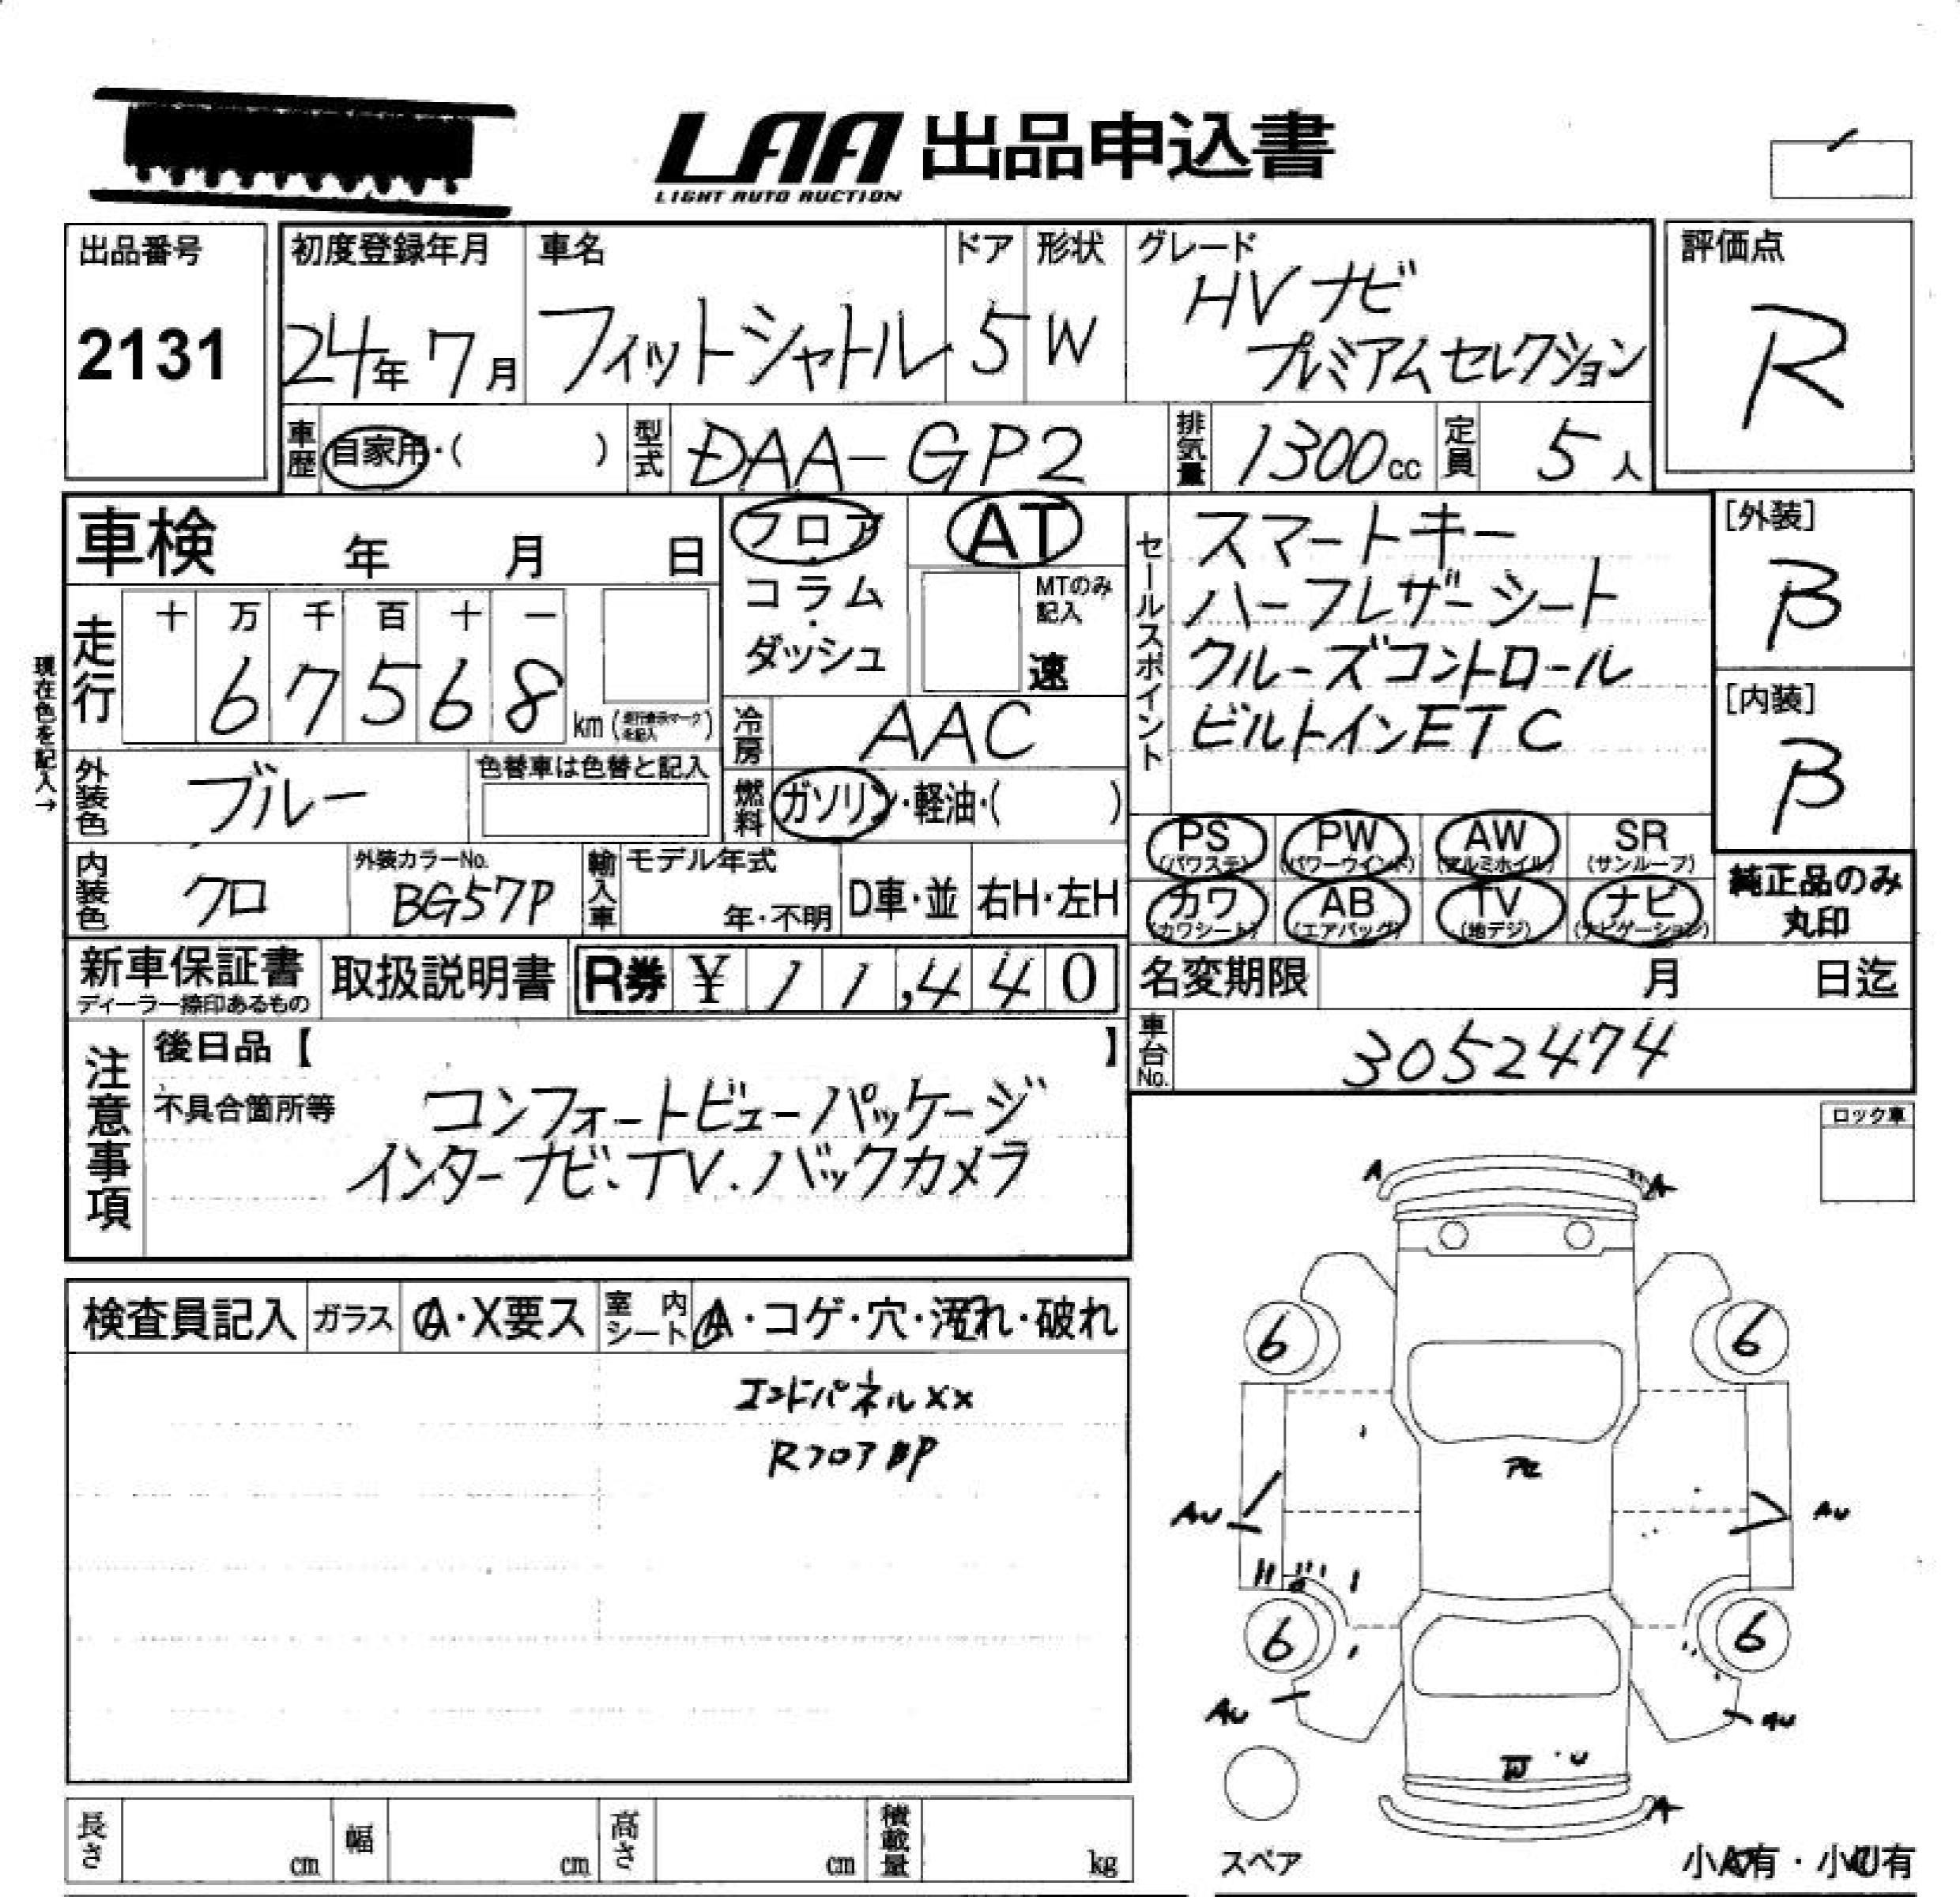 LAA 出品申込書
LIGHT AUTO AUCTION
出品番号
2131
初度登録年月
24年 7月
車名
フィットシャトル
ドア
5
形状
W
グレード
HV ナビ
プレミアムセレクション
評価点
R
車歴
自家用・( )
型式
DAA-GP2
排気量
1300cc
定員
5人
車検 年 月 日
フロア・
コラム・
ダッシュ
AT
MTのみ
記入
速
セールスポイント
スマートキー
ハーフレザーシート
クルーズコントロール
ビルトインETC
[外装]
B
[内装]
B
現在色を記入→
走行
十 万 千 百 十 一
6 7 5 6 8
km
冷房
AAC
外装色
ブルー
色替車は色替と記入
燃料
ガソリン・軽油・( )
PS (パワステ)
PW (パワーウインド)
AW (アルミホイル)
SR (サンルーフ)
カワ (カワシート)
AB (エアバッグ)
TV (地デジ)
ナビ (ナビゲーション)
純正品のみ
丸印
内装色
クロ
外装カラーNo.
BG57P
輸入車
モデル年式
年・不明
D車・並
右H・左H
新車保証書
ディーラー捺印あるもの
取扱説明書
R券 ¥ 11,440
名変期限 月 日迄
車台No.
3052474
注意事項
後日品【 】
不具合箇所等
コンフォートビューパッケージ
インターナビ、TV、バックカメラ
ロック車
検査員記入
ガラス
A・X要ス
室内シート
・コゲ・穴・濡れ・破れ
エンドパネルXX
Rフロア
A
A
6
6
AU
AU
6
6
AU
AU
W
U
A
スペア
小A有・小U有
長さ cm
幅 cm
高さ cm
積載量 kg